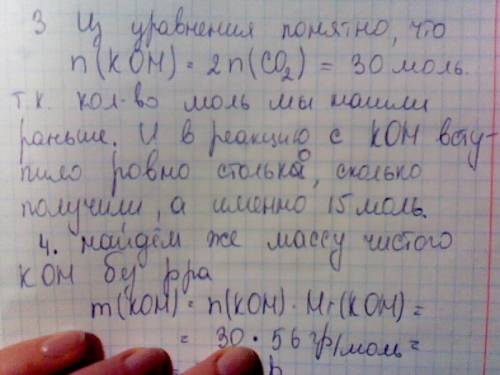 3 Из уравнения понятно, что
n(KOH) = 2n(CO₂) = 30 моль.
т.к. кол-во моль мы нашли
раньше. И в реакцию с KOH всту-
пило ровно столько, сколько
получили, а именно 15 моль.
4. найдём же массу чистого
KOH без р-ра
m(KOH) = n(KOH) · Mr(KOH) =
= 30 · 56 гр/моль =